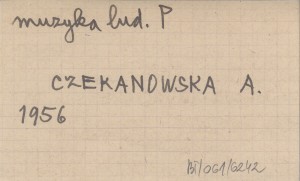 muzyka lud. P
CZEKANOWSKA A.
1956
Bi/061/6242